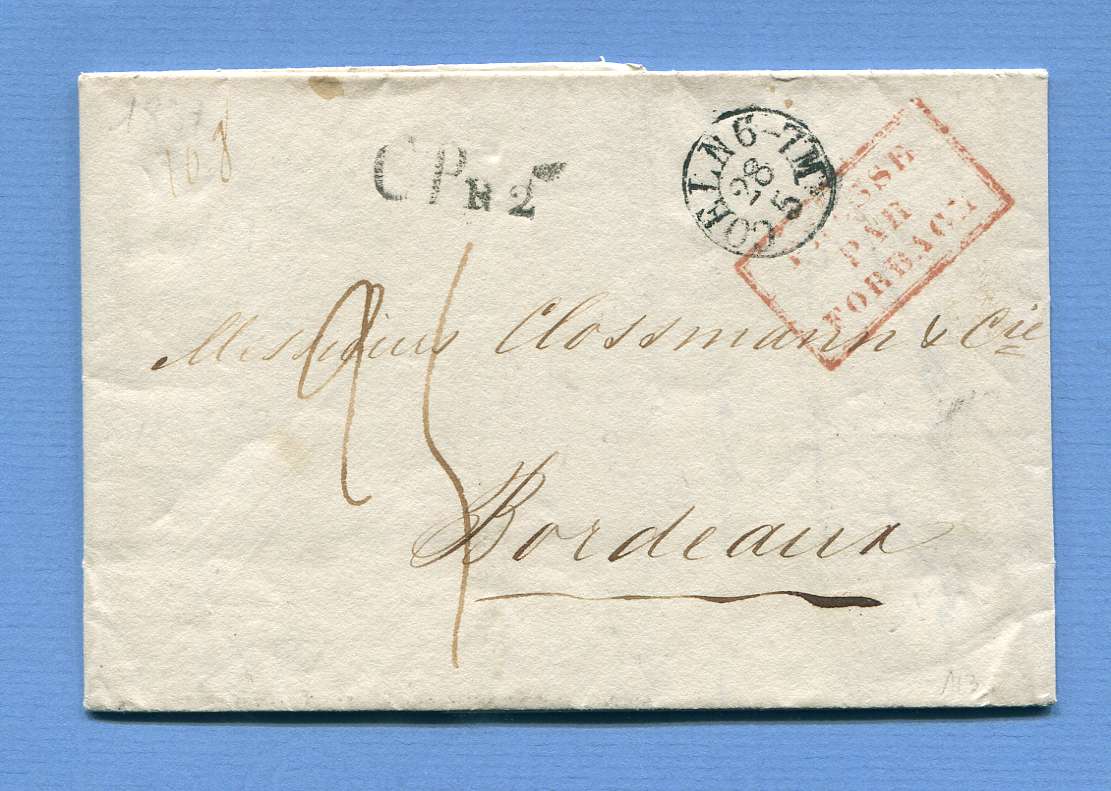 108
C P R 2
COELN 6-7 M
28
5
PRUSSE
PAR
FORBACH
Messieurs Clossmann & Cie
Bordeaux